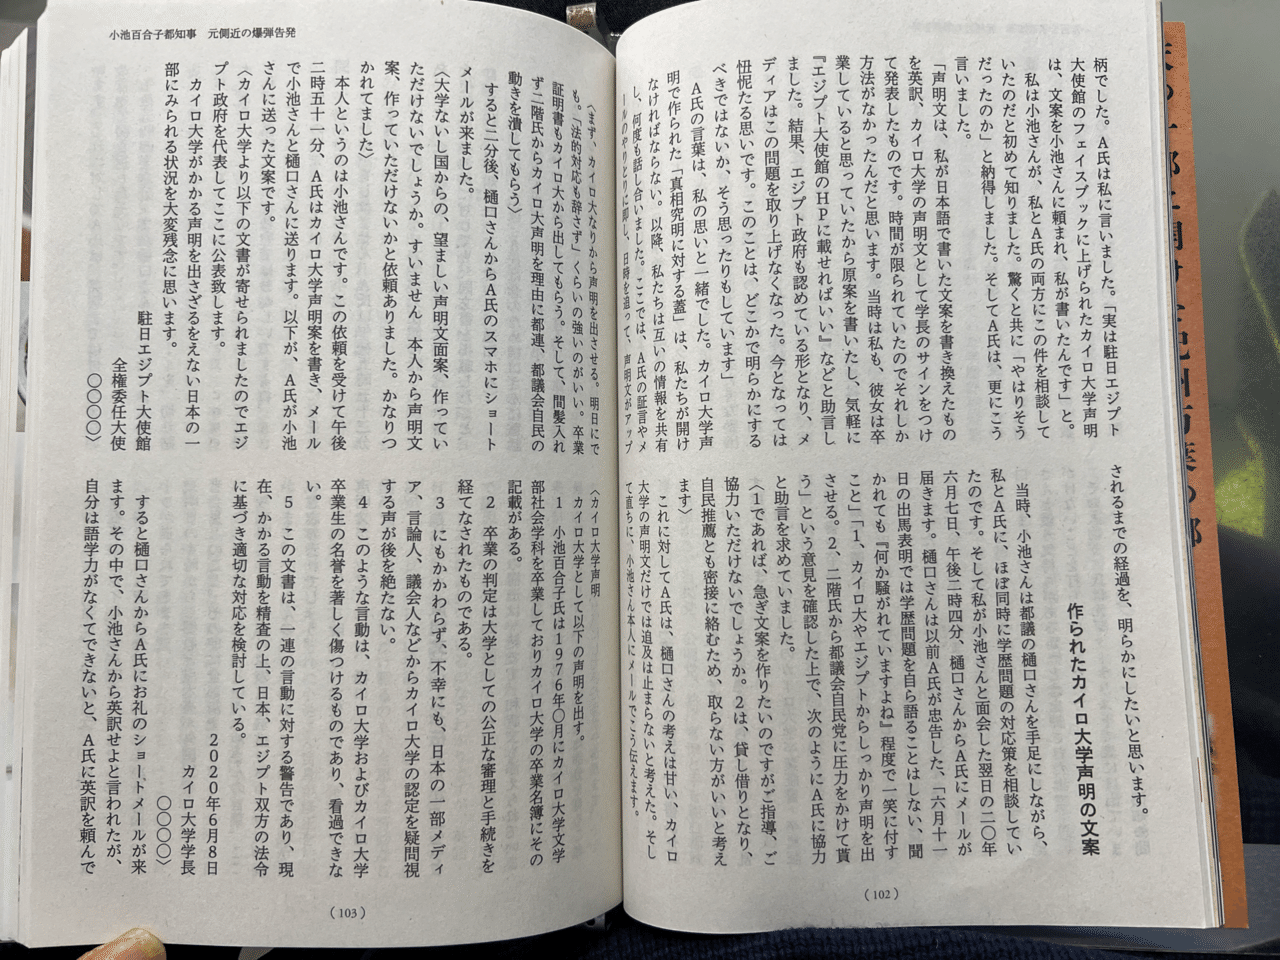 柄でした。A氏は私に言いました。「実は駐日エジプト
大使館のフェイスブックに上げられたカイロ大学声明
は、文案を小池さんに頼まれ、私が書いたんです」と。
私は小池さんが、私とA氏の両方にこの件を相談して
いたのだと初めて知りました。驚くと共に「やはりそう
だったのか」と納得しました。そしてA氏は、更にこう
言いました。
「声明文は、私が日本語で書いた文案を書き換えたもの
を英訳、カイロ大学の声明文として学長のサインをつけ
て発表したものです。時間が限られていたのでそれしか
方法がなかったんだと思います。当時は私も、彼女は卒
業していると思っていたから原案を書いたし、気軽に
『エジプト大使館のHPに載せればいい』などと助言し
ました。結果、エジプト政府も認めている形となり、メ
ディアはこの問題を取り上げなくなった。今となっては
忸怩たる思いです。このことは、どこかで明らかにする
べきではないか、そう思ったりもしています」
A氏の言葉は、私の思いと一緒でした。カイロ大学声
明で作られた「真相究明に対する蓋」は、私たちが開け
なければならない。以降、私たちは互いの情報を共有
し、何度も話し合いました。ここでは、A氏の証言やメ
ールのやりとりに則し、日時を追って、声明文がアップ
されるまでの経過を、明らかにしたいと思います。
作られたカイロ大学声明の文案
当時、小池さんは都議の樋口さんを手足にしながら、
私とA氏に、ほぼ同時に学歴問題の対応策を相談してい
たのです。そして私が小池さんと面会した翌日の二〇年
六月七日、午後二時四分、樋口さんからA氏にメールが
届きます。樋口さんは以前A氏が忠告した、「六月十一
日の出馬表明では学歴問題を自ら語ることはしない、聞
かれても『何か騒がれていますよね』程度で一笑に付す
こと」「1、カイロ大やエジプトからしっかり声明を出
させる。2、二階氏から都議会自民党に圧力をかけて貰
う」という意見を確認した上で、次のようにA氏に協力
と助言を求めていました。
〈1であれば、急ぎ文案を作りたいのですがご指導、ご
協力いただけないでしょうか。2は、貸し借りとなり、
自民推薦とも密接に絡むため、取らない方がいいと考え
ます〉
これに対してA氏は、樋口さんの考えは甘い、カイロ
大学の声明文だけでは追及は止まらないと考えた。そし
て直ちに、小池さん本人にメールでこう伝えます。
(102)
小池百合子都知事 元側近の爆弾告発
〈まず、カイロ大なりから声明を出させる。明日にで
も。「法的対応も辞さず」くらいの強いのがいい。卒業
証明書もカイロ大から出してもらう。そして、間髪入れ
ず二階氏からカイロ大声明を理由に都連、都議会自民の
動きを潰してもらう〉
すると二分後、樋口さんからA氏のスマホにショート
メールが来ました。
〈大学ないし国からの、望ましい声明文面案、作ってい
ただけないでしょうか。すいません 本人から声明文
案、作っていただけないかと依頼ありました。かなりつ
かれてました〉
本人というのは小池さんです。この依頼を受けて午後
二時五十一分、A氏はカイロ大学声明案を書き、メール
で小池さんと樋口さんに送ります。以下が、A氏が小池
さんに送った文案です。
〈カイロ大学より以下の文書が寄せられましたのでエジ
プト政府を代表してここに公表致します。
カイロ大学がかかる声明を出さざるをえない日本の一
部にみられる状況を大変残念に思います。
駐日エジプト大使館
全権委任大使
〇〇〇〇〉
〈カイロ大学声明
カイロ大学として以下の声明を出す。
1 小池百合子氏は1976年〇月にカイロ大学文学
部社会学科を卒業しておりカイロ大学の卒業名簿にその
記載がある。
2 卒業の判定は大学としての公正な審理と手続きを
経てなされたものである。
3 にもかかわらず、不幸にも、日本の一部メディ
ア、言論人、議会人などからカイロ大学の認定を疑問視
する声が後を絶たない。
4 このような言動は、カイロ大学およびカイロ大学
卒業生の名誉を著しく傷つけるものであり、看過できな
い。
5 この文書は、一連の言動に対する警告であり、現
在、かかる言動を精査の上、日本、エジプト双方の法令
に基づき適切な対応を検討している。
2020年6月8日
カイロ大学学長
〇〇〇〇〉
すると樋口さんからA氏にお礼のショートメールが来
ます。その中で、小池さんから英訳せよと言われたが、
自分は語学力がなくてできないと、A氏に英訳を頼んで
(103)